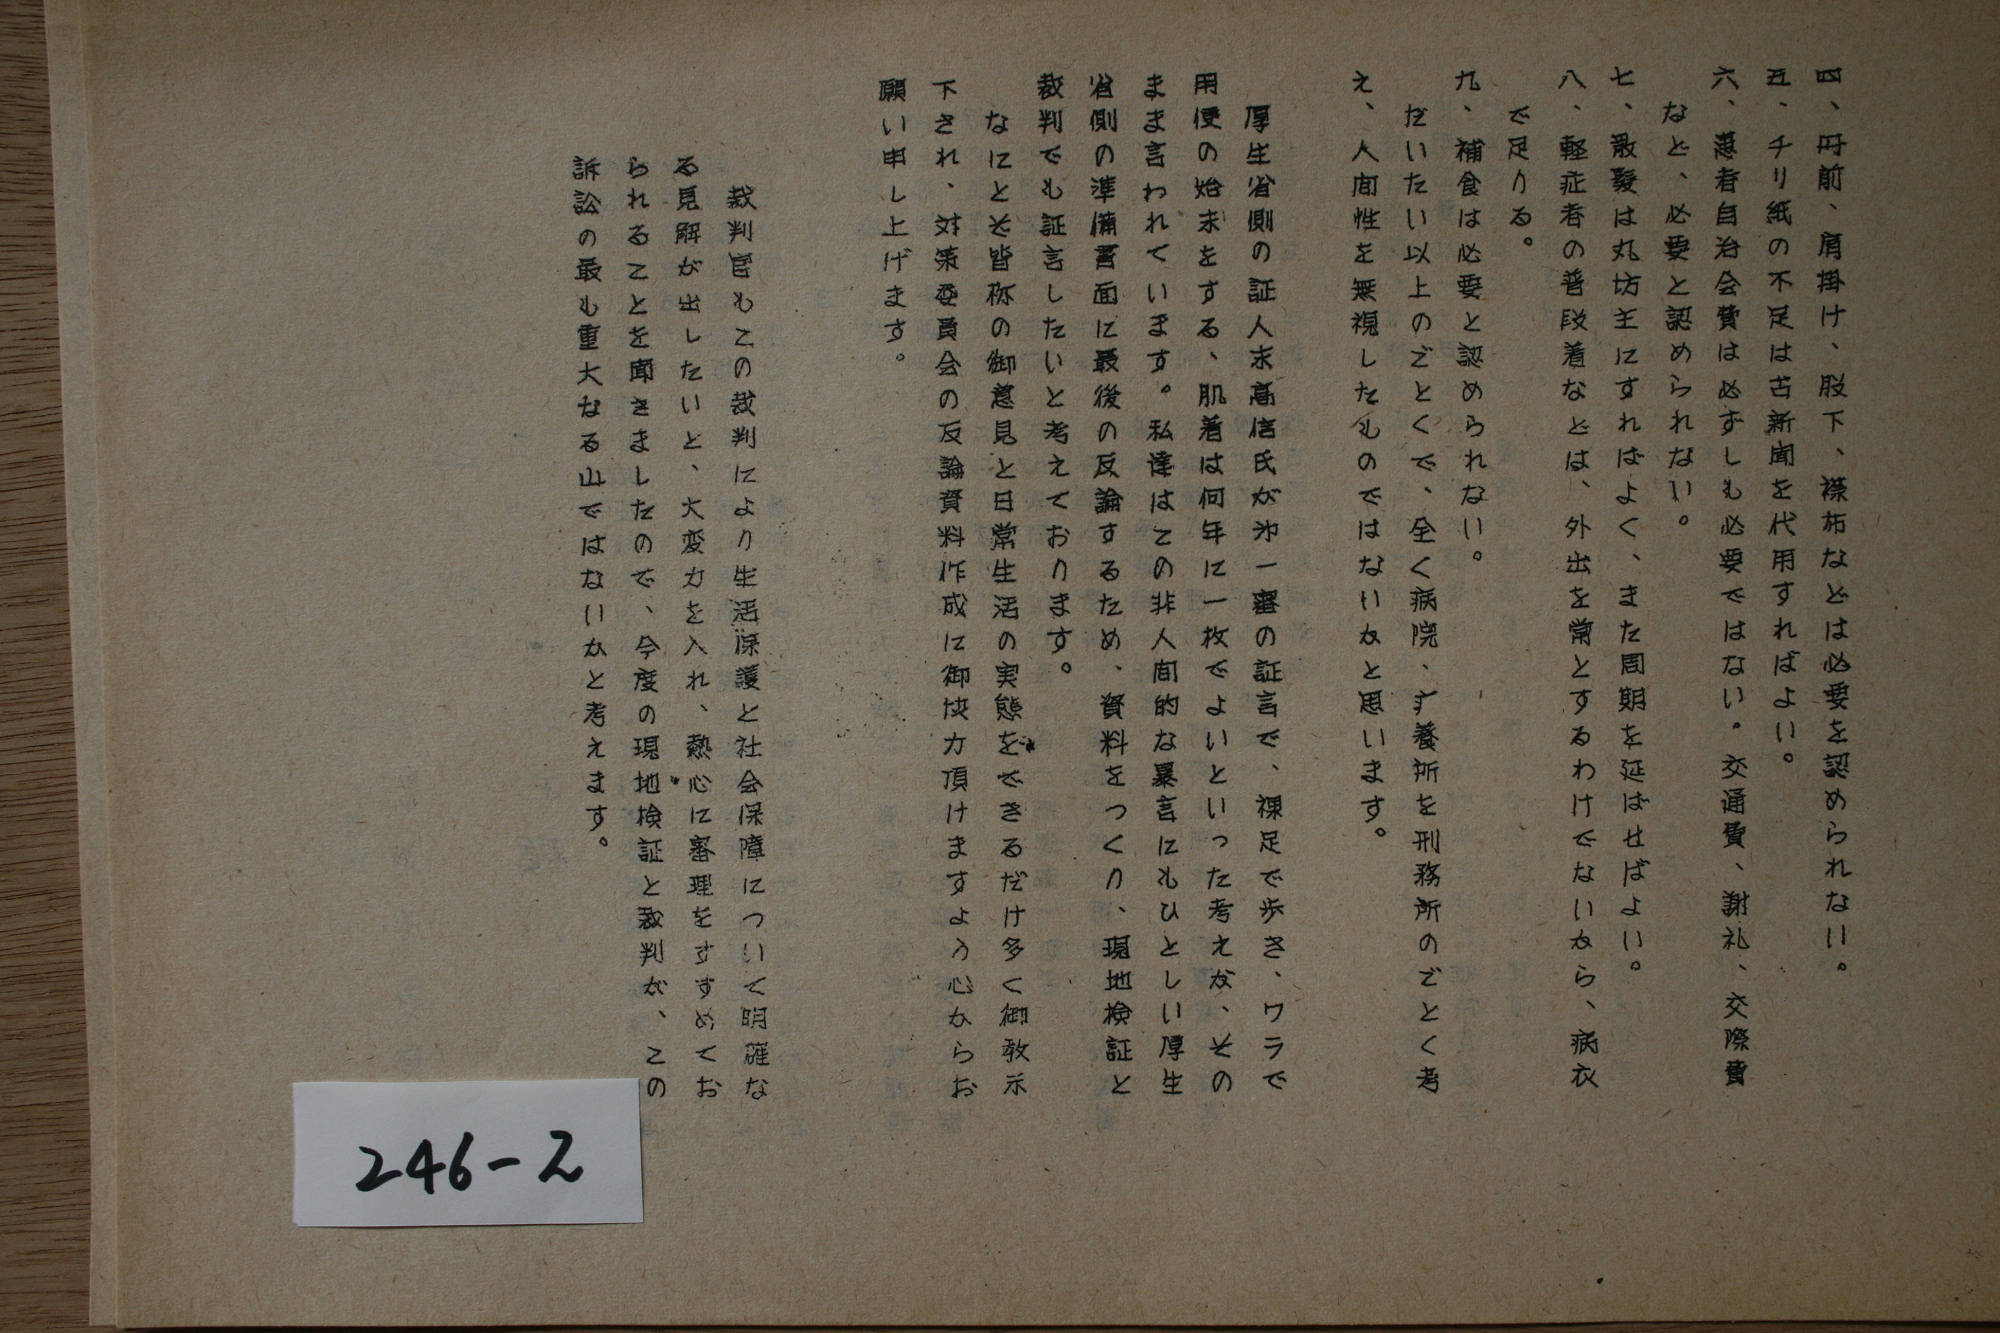 四、丹前、肩掛け、股下、襟布などは必要を認められない。
五、チリ紙の不足は古新聞を代用すればよい。
六、患者自治会費は必ずしも必要ではない。交通費、謝礼、交際費
など、必要と認められない。
七、散髪は丸坊主にすればよく、また周期を延ばせばよい。
八、軽症者の普段着などは、外出を常とするわけでないから、病衣
で足りる。
九、補食は必要と認められない。
だいたい以上のごとくで、全く病院、疒養所を刑務所のごとく考
え、人间性を無視したものではないかと思います。
厚生省側の証人末高信氏が㐧一審の証言で、裸足で歩き、ワラで
用便の始末をする、肌着は何年に一枚でよいといった考えが、その
まま言われています。私達はこの非人间的な暴言にもひとしい厚生
省側の準備書面に最後の反論するため、資料をつくり、現地検証と
裁判でも証言したいと考えております。
なにとぞ皆称の御意見と日常生活の実態をできるだけ多く御教示
下され、対策委員会の反論資料作成に御协力頂けますよう心からお
願い申し上げます。
裁判官もこの裁判により生活保護と社会保障について明確な
る見解が出したいと、大変力を入れ、熱心に審理をすすめてお
られることを聞きましたので、今度の現地検証と裁判が、この
訴訟の最も重大なる山ではないかと考えます。
246-2